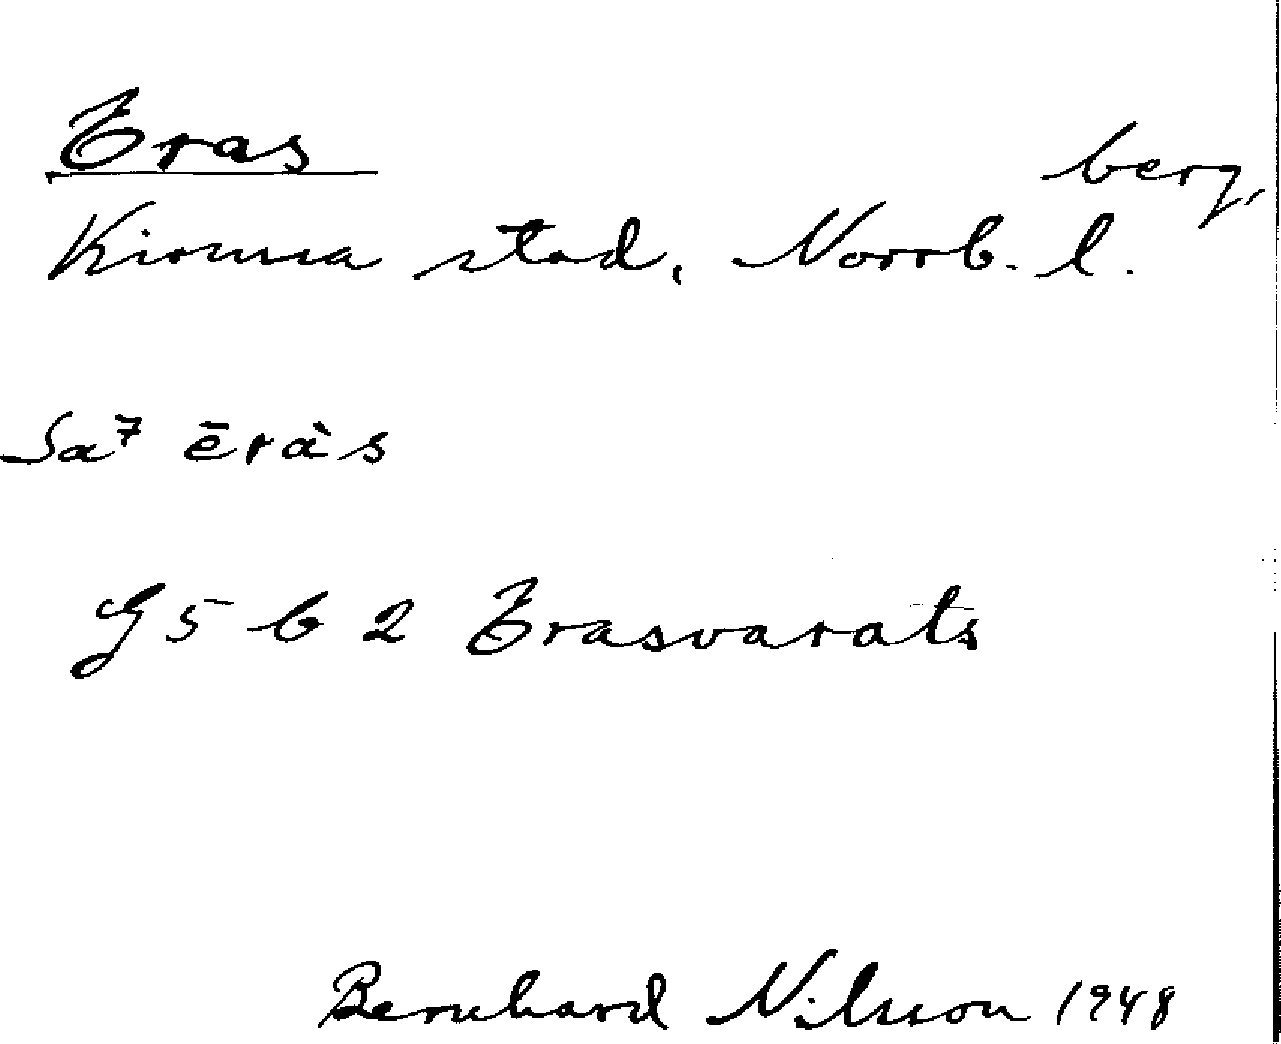 Eras
berg,
Kiruna stad, Norrb. l.
Sa7 ēràs
G 5 b 2 Erasvarats
Bernhard Nilsson 1948